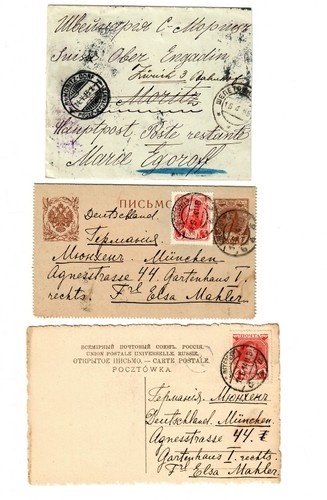 Швейцарія С-Морицъ
Suisse Ober Engadin
Zürich 3 Bahnhof
Moritz
Hauptpost Poste restante
Marie Egoroff
ПИСЬМО
Deutschland.
Германія.
Мюнхенъ. München
Agnesstrasse 44. Gartenhaus I.
rechts. Frl Elsa Mahler.
ВСЕМІРНЫЙ ПОЧТОВЫЙ СОЮЗЪ. РОССІЯ.
UNION POSTALE UNIVERSELLE. RUSSIE.
ОТКРЫТОЕ ПИСЬМО. — CARTE POSTALE
POCZTÓWKA.
Германія. Мюнхенъ
Deutschland. München.
Agnesstrasse 44. I
Gartenhaus I. rechts.
Frl Elsa Mahler.